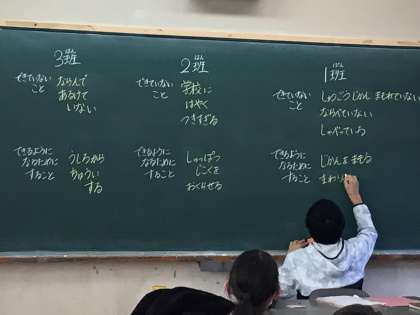 3班
はん
できていない
こと
ならんで
あるけて
いない
できるように
なるために
すること
うしろから
ちゅうい
する
2班
はん
できていない
こと
学校に
はやく
つきすぎる
できるように
なるために
すること
しゅっぱつ
じこくを
おくらせる
1班
はん
できていない
こと
しゅうごうじかん まもれていない
ならべていない
しゃべっている
できるように
なるために
すること
じかんをまもる
まわり